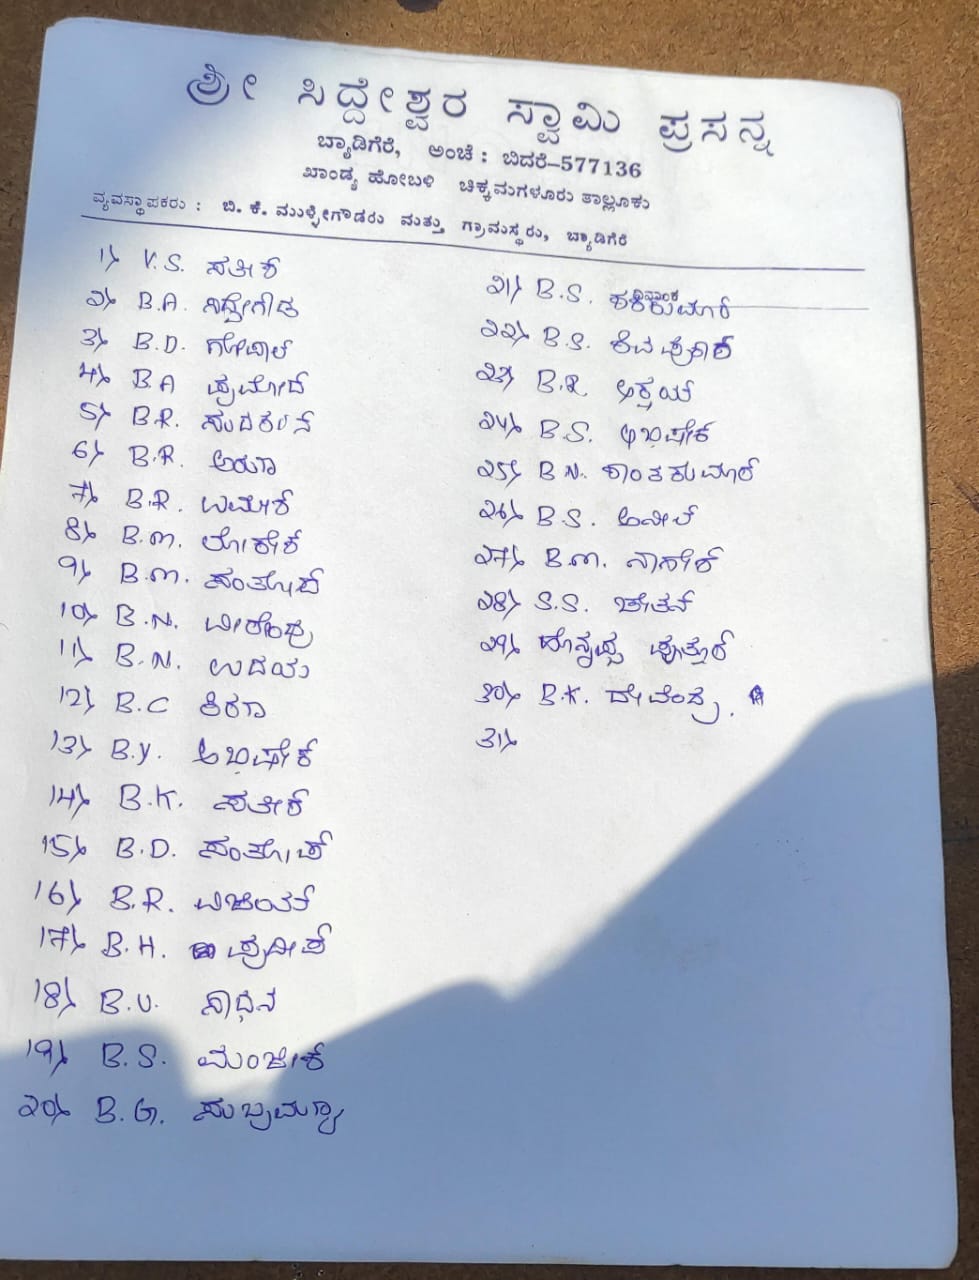 ಶ್ರೀ ಸಿದ್ದೇಶ್ವರ ಸ್ವಾಮಿ ಪ್ರಸನ್ನ
ಬ್ಯಾಡಿಗೆರೆ, ಅಂಚೆ : ಬಿದರೆ–577136
ಖಾಂಡ್ಯ ಹೋಬಳಿ ಚಿಕ್ಕಮಗಳೂರು ತಾಲ್ಲೂಕು
ವ್ಯವಸ್ಥಾಪಕರು : ಬಿ. ಕೆ. ಮುಳ್ಳೇಗೌಡರು ಮತ್ತು ಗ್ರಾಮಸ್ಥರು, ಬ್ಯಾಡಿಗೆರೆ
1) V.S. ಸತೀಶ್
೨) B.A. ಸಿದ್ದೇಗೌಡ
3) B.D. ಗೋಪಾಲ್
4) B.A ಪ್ರಮೋದ್
5) B.R. ಸುದರ್ಶನ್
6) B.R. ಅರುಣ
7) B.R. ಉಮೇಶ್
8) B.M. ಲೋಕೇಶ್
9) B.M. ಸಂತೋಷ್
10) B.N. ವೀರೇಂದ್ರ
11) B.N. ಉದಯ
12) B.C ಕಿರಣ
13) B.Y. ಅಭಿಷೇಕ್
14) B.K. ಸತೀಶ್
15) B.D. ಸಂತೋಷ್
16) B.R.
17) B.H. ಪ್ರದೀಪ್
18) B.U. ಸಾಧನ
19) B.S. ಮಂಜೇಶ್
೨0) B.G. ಸುಬ್ರಮಣ್ಯ
೨1) B.S. ಶಶಿಕುಮಾರ್
ದಿನಾಂಕ
೨೨) B.S. ಶಿವಪ್ರಕಾಶ್
೨3) B.R. ಅಕ್ಷಯ್
೨4) B.S. ಅಭಿಷೇಕ್
೨5) B.N. ಶಾಂತಕುಮಾರ್
೨6) B.S. ಅನೀಲ್
೨7) B.M. ನಾಗೇಶ್
೨8) S.S. ಚೇತನ್
೨9) ಹೊನ್ನಪ್ಪ ಪುತ್ತೂರ್
30) B.K. ದೇವೇಂದ್ರ.
31)